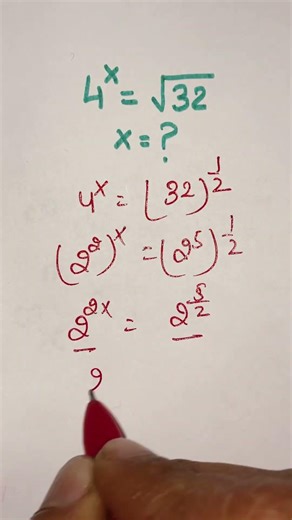 4^x = √32
x = ?
4^x = (32)^(1/2)
(2^2)^x = (2^5)^(1/2)
2^(2x) = 2^(5/2)
2